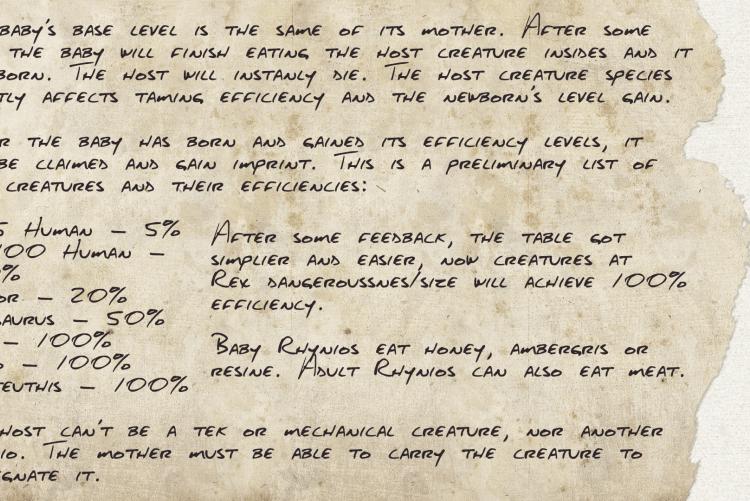 BABY'S BASE LEVEL IS THE SAME OF ITS MOTHER. AFTER SOME
THE BABY WILL FINISH EATING THE HOST CREATURE INSIDES AND IT
BORN. THE HOST WILL INSTANLY DIE. THE HOST CREATURE SPECIES
TLY AFFECTS TAMING EFFICIENCY AND THE NEWBORN'S LEVEL GAIN.
R THE BABY HAS BORN AND GAINED ITS EFFICIENCY LEVELS, IT
BE CLAIMED AND GAIN IMPRINT. THIS IS A PRELIMINARY LIST OF
CREATURES AND THEIR EFFICIENCIES:
5 HUMAN – 5%
100 HUMAN –
%
OR – 20%
AURUS – 50%
– 100%
– 100%
TEUTHIS – 100%
AFTER SOME FEEDBACK, THE TABLE GOT
SIMPLIER AND EASIER, NOW CREATURES AT
REX DANGEROUSSNES/SIZE WILL ACHIEVE 100%
EFFICIENCY.
BABY RHYNIOS EAT HONEY, AMBERGRIS OR
RESINE. ADULT RHYNIOS CAN ALSO EAT MEAT.
HOST CAN'T BE A TEK OR MECHANICAL CREATURE, NOR ANOTHER
IO. THE MOTHER MUST BE ABLE TO CARRY THE CREATURE TO
EGNATE IT.